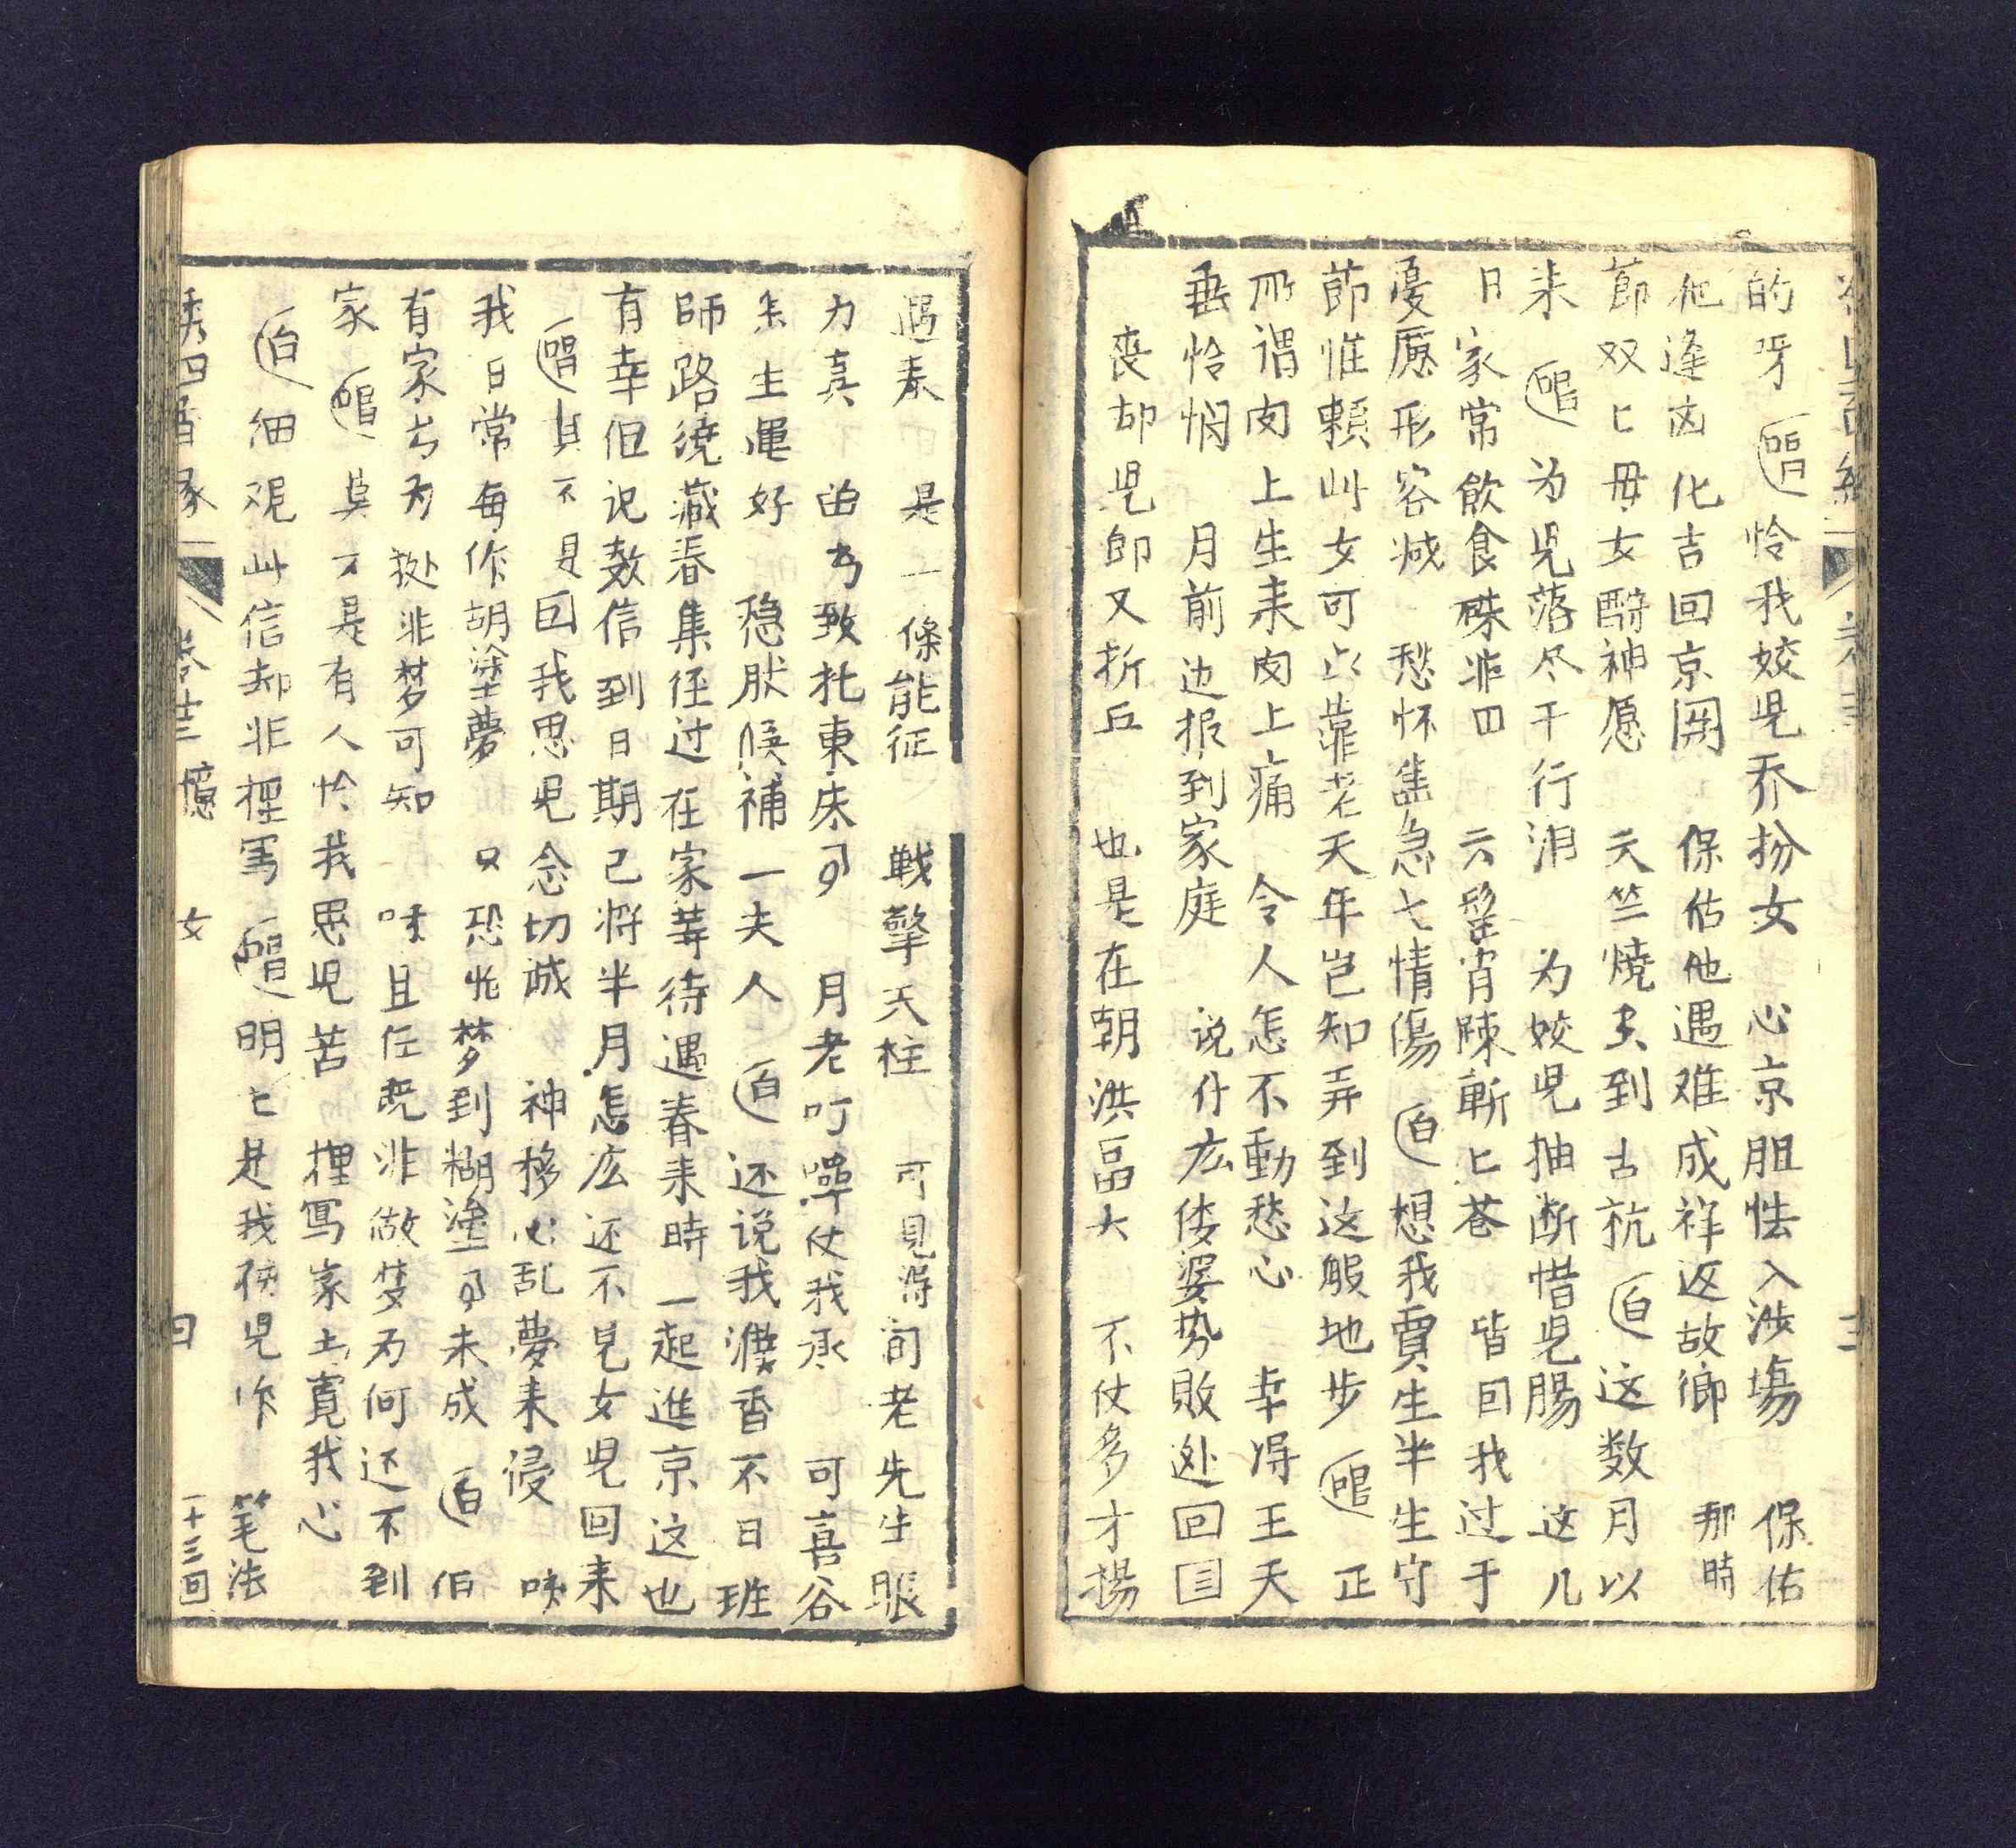 的呀 唱 怜我姣児乔扮女 心京胆怯入涉塲 保佑
他逢凶化吉回京闱 保估他遇难成祥返故鄉 那時
莭双匕母女酧神愿 天竺燒到古杭 白 这数月以
来 唱 为児落尽千行泪 为姣児抽断惜児腸 这几
日家常飲食殊非四 云髩肖踈斬匕苍 皆因我过于
憂慮形容减 愁怀雋急七情傷 白 想我賈生半生守
莭惟賴此女可以靠老天年岂知弄到这般地步 唱 正
所谓肉上生来肉上痛 令人怎不動愁心 幸得王天
垂怜悯 月前边报到家庭 说什庅倭婆势敗逃回国
丧却児郎又折丘 也是在朝洪畐大 不仗多才揚
遇春 是一條能征 戦擎天柱 可見得 老先生眼
力真 的为致托東床 月老叮嚀仗我承 可喜谷
生運好 穏肰候補一夫人 白 还说我濮香不日班
師路遶藏春集徑过在家荨待遇春来時一起進京这也
有幸但说数信到日期已将半月怎庅还不見女児回来
唱 真不是因我思児念切诚 神移心乱夢来侵
我日常每作胡塗夢 只恐怕梦到糊塗未成 白
有家为 非梦可知 且住既非做梦为何还不到
家 唱 莫不是有人怜我思児苦 捏寫家土寛我心
白 细观此信却非捏寫 唱 明匕是我侠児作 笔法
绣四香缘 卷十三 憶女 四 一十三回